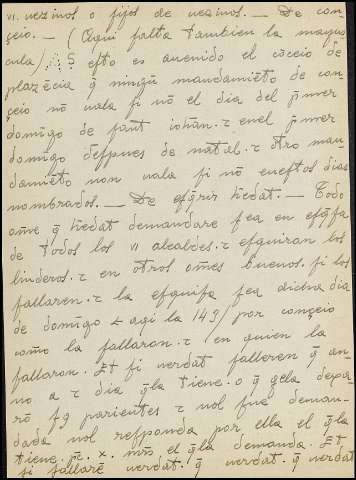 VI. uezinos o fijos de uezinos. — De con-
çeio. — (Aqui falta tambien la mayus
cula) ჻ S esto es auenido el cōceio de
plazēcia q̄ ningū mandamiēto de con-
çeio nō uala si nō el dia del p̄mer
domīgo de sant iohan. τ enel p̄mer
domīgo despues de natal. τ otro man-
damiēto non uala si nō enestos dias
nombrados. — De esq̄rir h̄edat. — Todo
om̄e q̄ h̄edat demandare sea en esq̄sa
de todos los alcaldes. τ esquiran los
linderos. τ en otros om̄es buenos. si los
fallaren. τ la esquisa sea dicha dia
de domīgo & aqi la 149 / por conçeio
como la fallaron. τ en quien la
fallaron. Et si uerdat falleren q̄ an-
no a τ dia q̄la tiene. o q̄ gela depa-
rō parientes τ nol fue deman-
dada nol responda por ella el q̄la
tiene. x. mr̄s el q̄la demanda. Et
si fallarē uerdat. q̄ uerdat